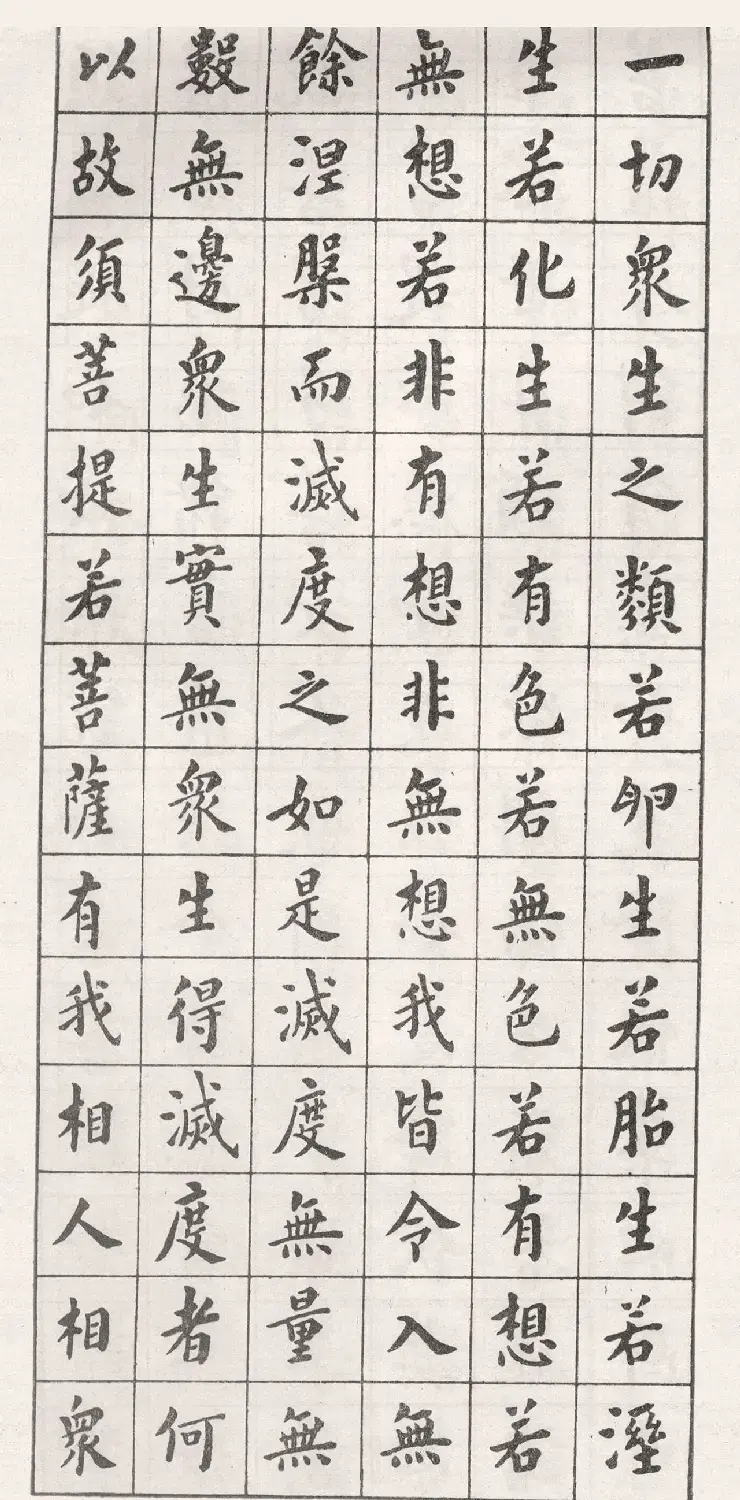 一切眾生之類若卵生若胎生若溼
生若化生若有色若無色若有想若
無想若非有想非無想我皆令入無
餘涅槃而滅度之如是滅度無量無
數無邊眾生實無眾生得滅度者何
以故須菩提若菩薩有我相人相眾